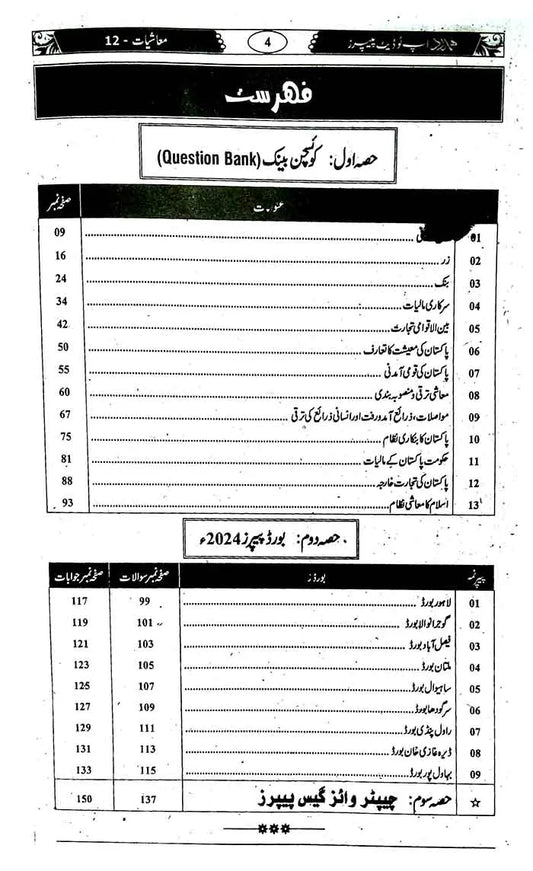 ہمدرد اپ ٹو ڈیٹ پیپرز 4 معاشیات - 12
فہرست
حصہ اول: کوئسچن بینک (Question Bank)
عنوانات صفحہ نمبر
01 09
02 زر 16
03 بنک 24
04 سرکاری مالیات 34
05 بین الاقوامی تجارت 42
06 پاکستان کی معیشت کا تعارف 50
07 پاکستان کی قومی آمدنی 55
08 معاشی ترقی و منصوبہ بندی 60
09 مواصلات، ذرائع آمدورفت اور انسانی ذرائع کی ترقی 67
10 پاکستان کا بنکاری نظام 75
11 حکومت پاکستان کے مالیات 81
12 پاکستان کی تجارت خارجہ 88
13 اسلام کا معاشی نظام 93
حصہ دوم: بورڈ پیپرز 2024ء
پیپر نمبر بورڈز صفحہ نمبر سوالات صفحہ نمبر جوابات
01 لاہور بورڈ 99 117
02 گوجرانوالا بورڈ 101 119
03 فیصل آباد بورڈ 103 121
04 ملتان بورڈ 105 123
05 ساہیوال بورڈ 107 125
06 سرگودھا بورڈ 109 127
07 راولپنڈی بورڈ 111 129
08 ڈیرہ غازی خان بورڈ 113 131
09 بہاول پور بورڈ 115 133
☆ حصہ سوم: چیپٹر وائز گیس پیپرز 137 150